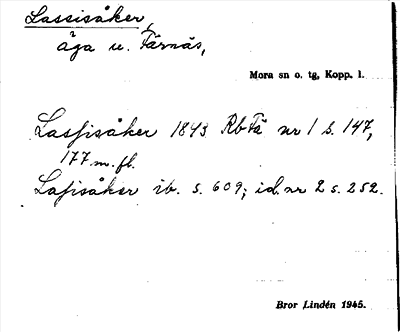 Lassisåker,
åga u. Färnäs,
Mora sn o. tg, Kopp. l.
Lassisåker 1843 Rb Fä nr 1 s. 147,
177 m. fl.
Lafisåker ib. s. 609; id. nr 2 s. 252.
Bror Lindén 1945.